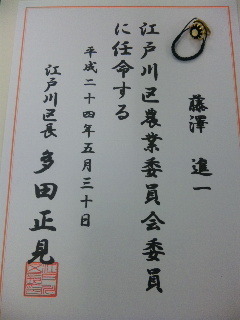 藤澤 進一
江戸川区農業委員会委員
に任命する
平成二十四年五月三十日
江戸川区長 多田正見